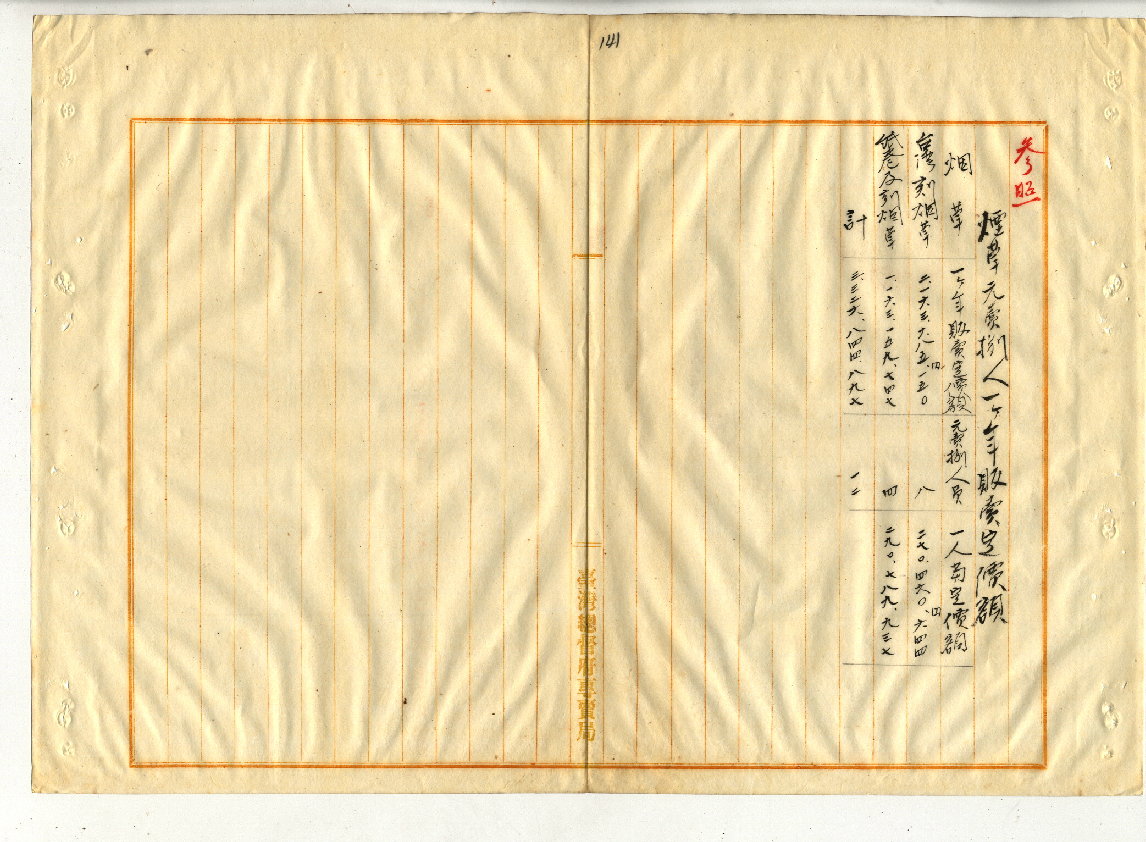 141
参照
煙草元賣捌人一ヶ年販賣定價額
烟草 一ヶ年販賣定價額 元賣捌人員 一人當定價額
刻烟草 二、一六三、六八五、円一五〇 八 二七〇、四六〇、円六四四
紙巻及刻烟草 一、一六三、一五九、七四七 四 二九〇、七八九、九三七
計 三、三二六、八四四、八九七 一二
臺灣總督府專賣局